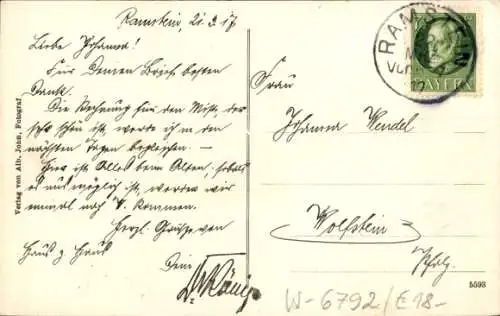 Ramstein, 21.3.17
Liebe Johanna!
Für Deinen Brief besten
Dank.
Die Rechnung für den Mist, der
sehr schön ist, werde ich in den
nächsten Tagen begleichen. –
Hier ist Alles beim Alten, sobald
es uns möglich ist, werden wir
einmal nach W. kommen.
Herzl. Grüsse von
Haus z. Haus
Dein
König
Verlag von Alb. John, Fotograf
RAMSTEIN
BAYERN
Frau
Johanna Wendel
Wolfstein
Pfalz.
5593
W-6792/E18-